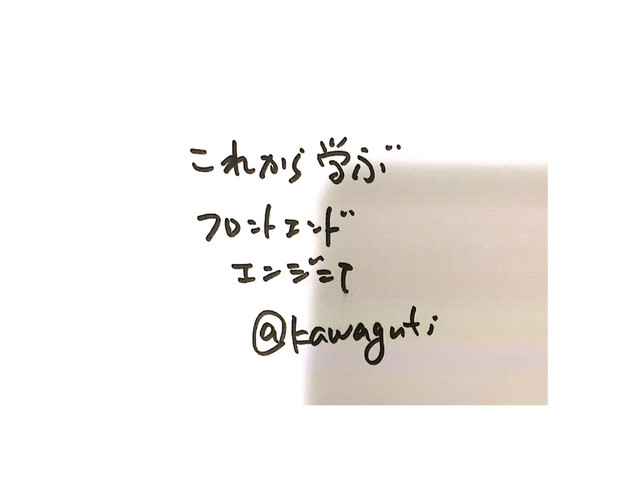 これから学ぶ
フロントエンド
エンジニア
@kawaguti